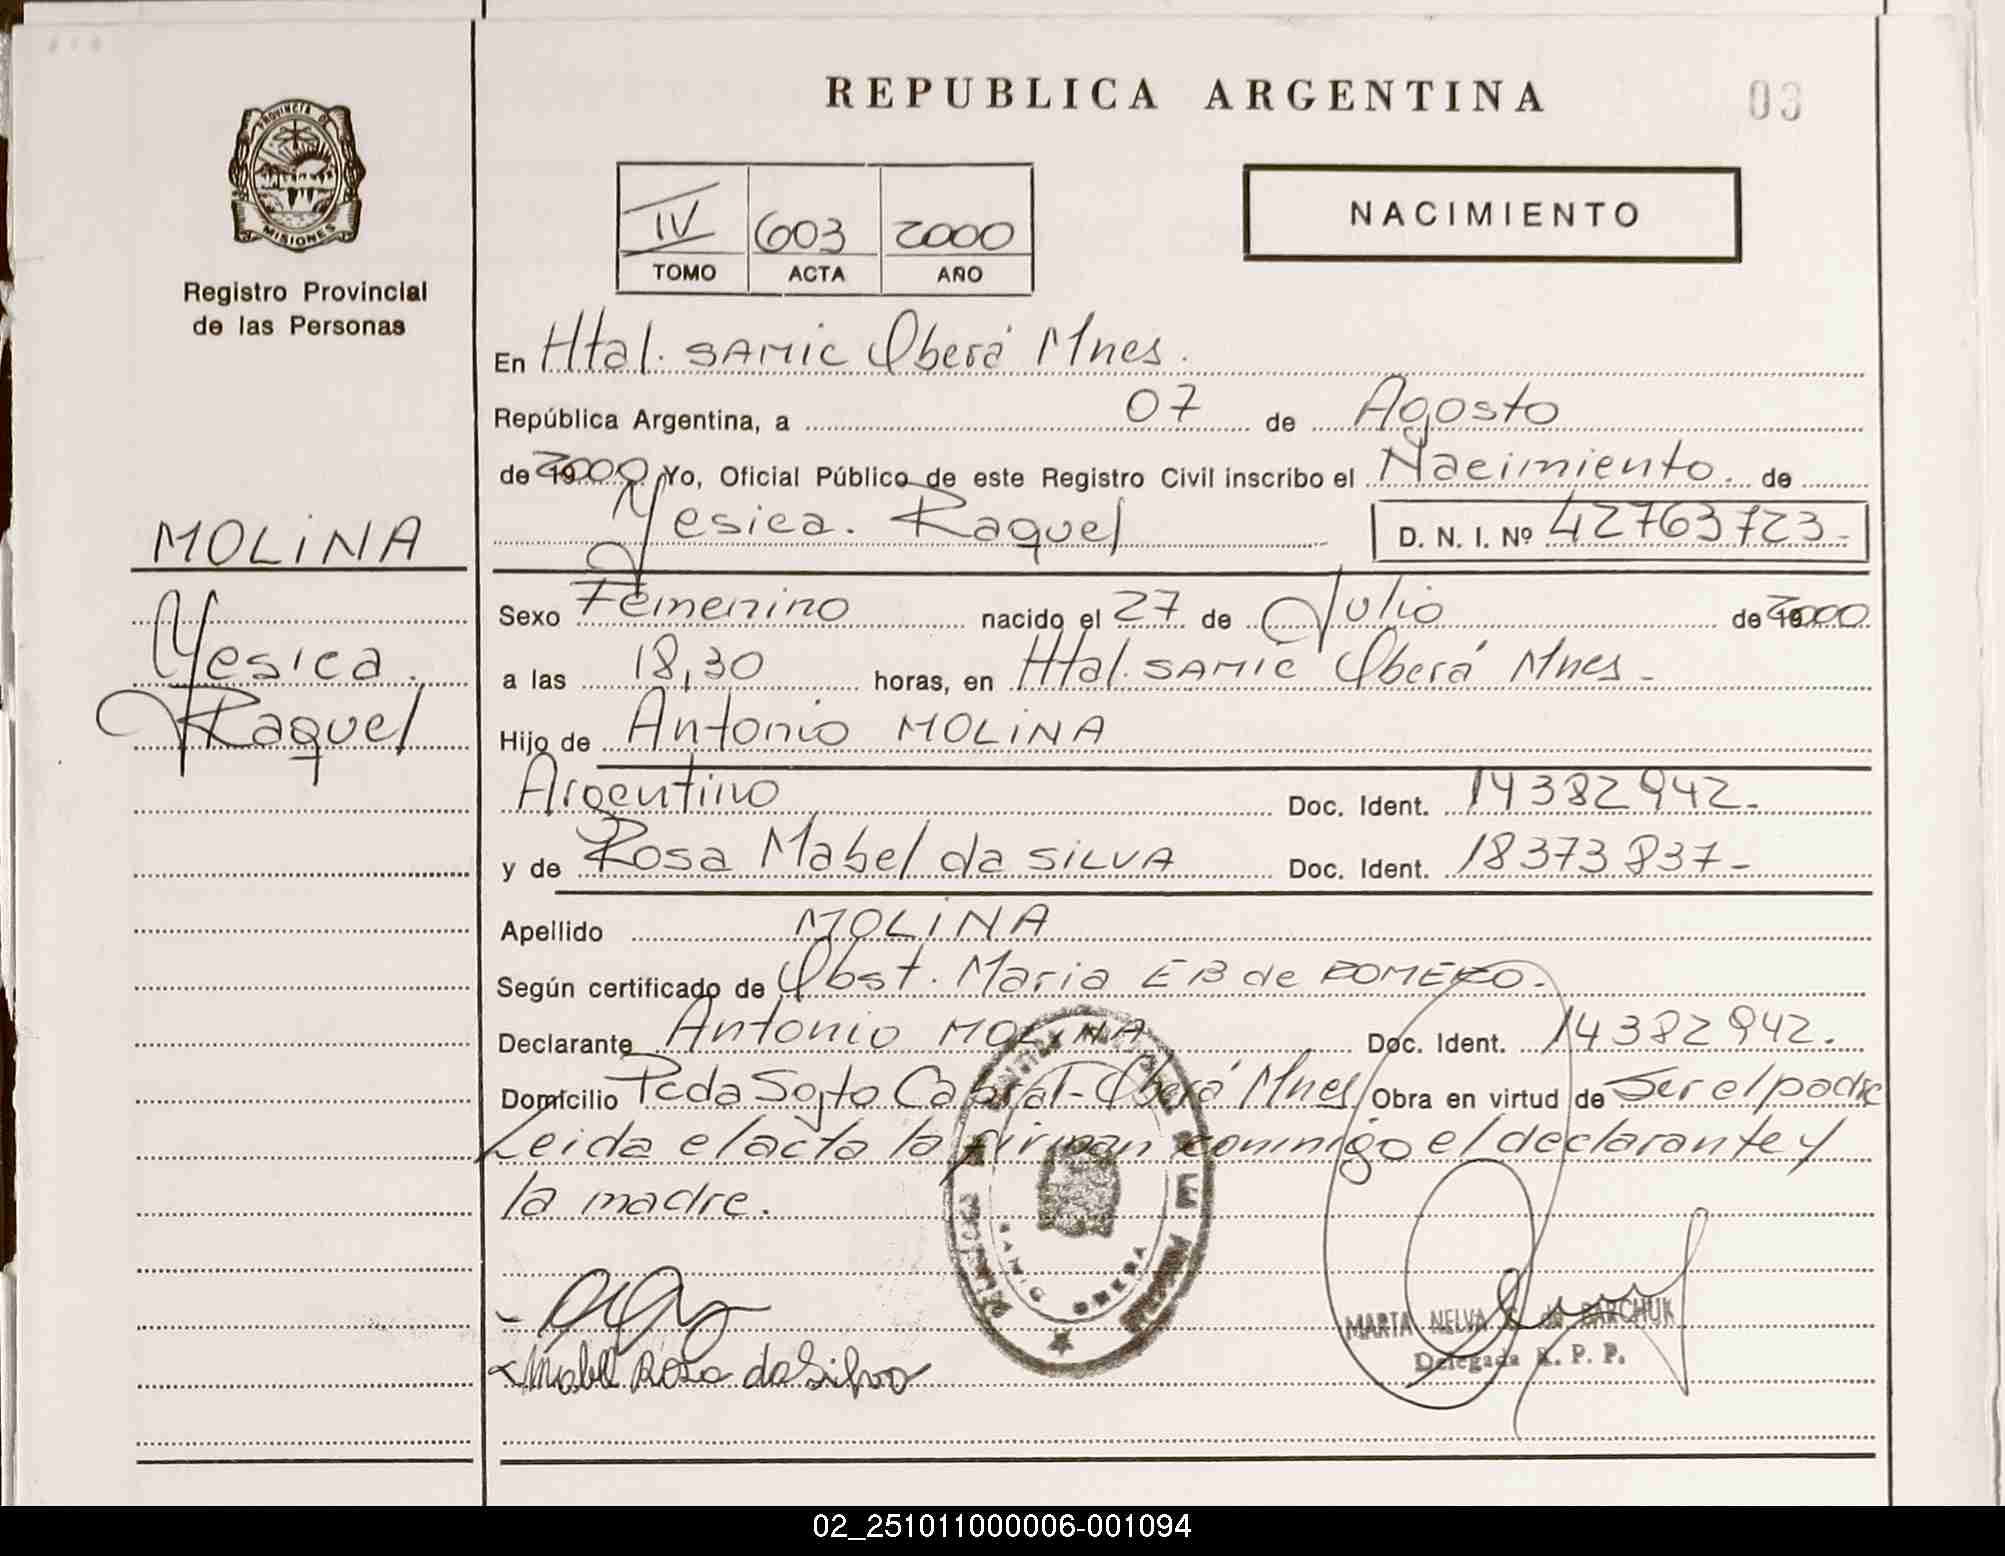 REPUBLICA ARGENTINA
03
PROVINCIA DE
MISIONES
Registro Provincial
de las Personas
IV 603 2000
TOMO ACTA AÑO
NACIMIENTO
En Htal. SAMIC Oberá Mnes.
República Argentina, a 07 de Agosto
de 2000 Yo, Oficial Público de este Registro Civil inscribo el Nacimiento. de
Yesica. Raquel D. N. I. Nº 42763723-
MOLINA
Yesica.
Raquel
Sexo Femenino nacido el 27 de Julio de 2000
a las 18,30 horas, en Htal. SAMIC Oberá Mnes-
Hijo de Antonio MOLINA
Argentino Doc. Ident. 14382942-
y de Rosa Mabel da SILVA Doc. Ident. 18373837-
Apellido MOLINA
Según certificado de Obst. Maria EB de ROMERO.
Declarante Antonio MOLINA Doc. Ident. 14382942.
Domicilio Pcda Sgto Cabral-Oberá Mnes Obra en virtud de Ser el padre
Leida el acta la firman conmigo el declarante y
la madre.
SAMIC OBERA
Mabel Rosa da Silva
MARTA NELVA de BARCHUK
Delegada R. P. P.
02_251011000006-001094